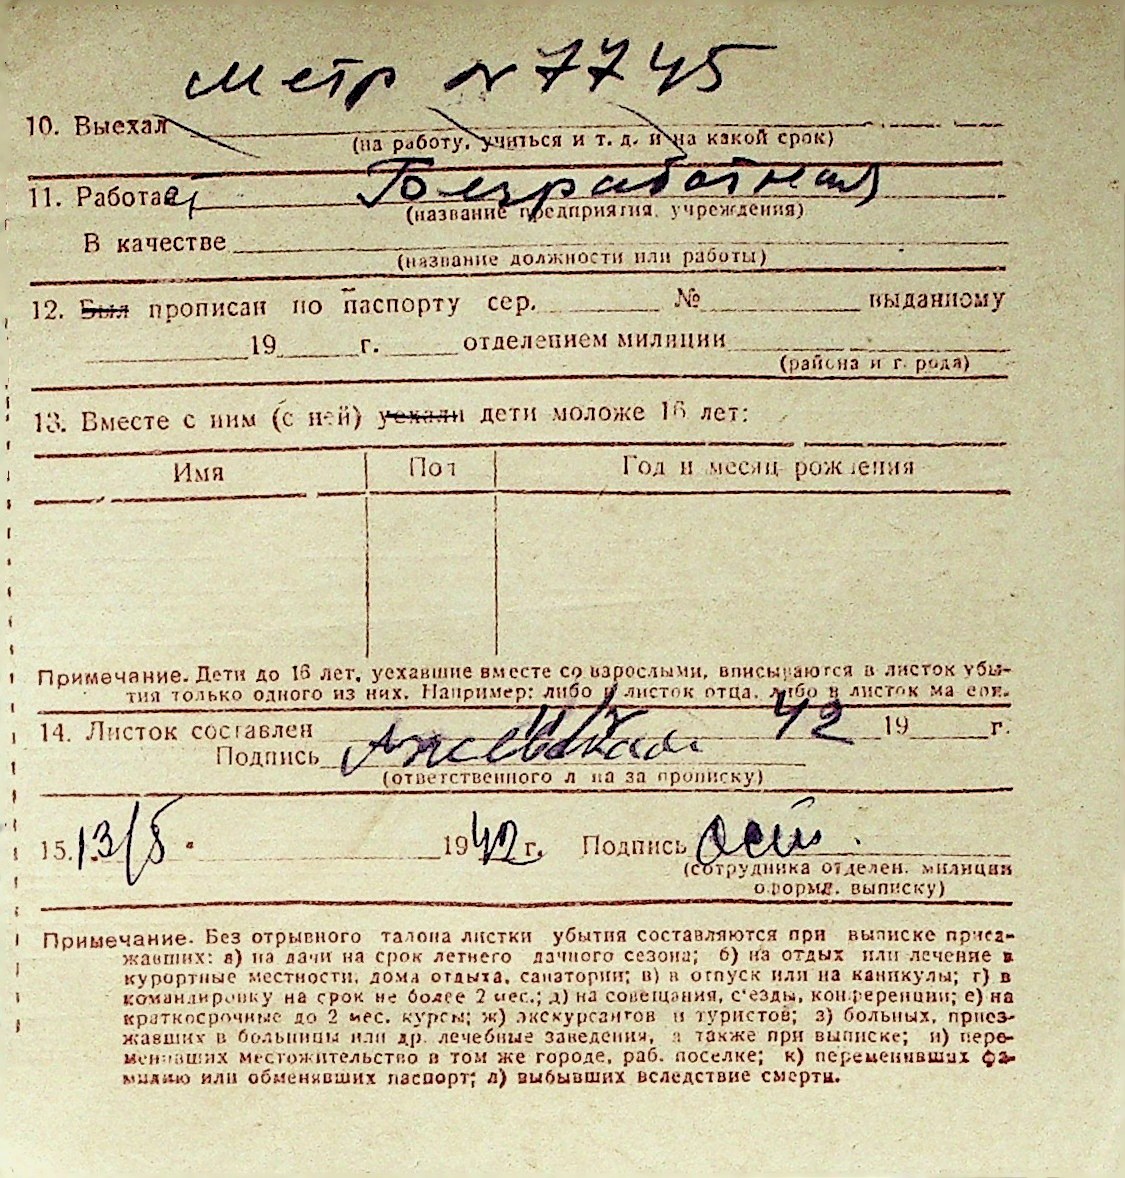 Метр № 7745
10. Выехал
(на работу, учиться и т. д. и на какой срок)
11. Работает Безработная
(название предприятия, учреждения)
В качестве
(название должности или работы)
12. Был прописан по паспорту сер. № выданному
19 г. отделением милиции
(района и города)
13. Вместе с ним (с ней) уехали дети моложе 16 лет:
Имя Пол Год и месяц рождения
Примечание. Дети до 16 лет, уехавшие вместе со взрослыми, вписываются в листок убы-
тия только одного из них. Например: либо в листок отца, либо в листок матери.
14. Листок составлен 42 19 г.
Подпись
(ответственного лица за прописку)
15. 13/5 1942 г. Подпись
(сотрудника отделен. милиции
оформл. выписку)
Примечание. Без отрывного талона листки убытия составляются при выписке приез-
жавших: а) на дачи на срок летнего дачного сезона; б) на отдых или лечение в
курортные местности, дома отдыха, санатории; в) в отпуск или на каникулы; г) в
командировку на срок не более 2 мес.; д) на совещания, с'езды, конференции; е) на
краткосрочные до 2 мес. курсы; ж) экскурсантов и туристов; з) больных, приез-
жавших в больницы или др. лечебные заведения, а также при выписке; и) пере-
менивших местожительство в том же городе, раб. поселке; к) переменивших фа-
милию или обменявших паспорт; л) выбывших вследствие смерти.